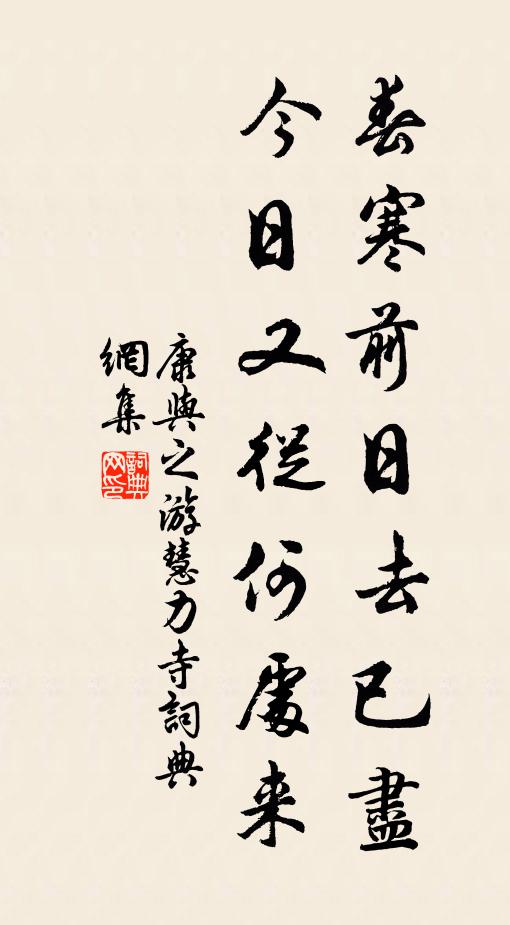 春寒前日去已盡
今日又從何處来
康與之游慧力寺詞典
網集
詞典網印